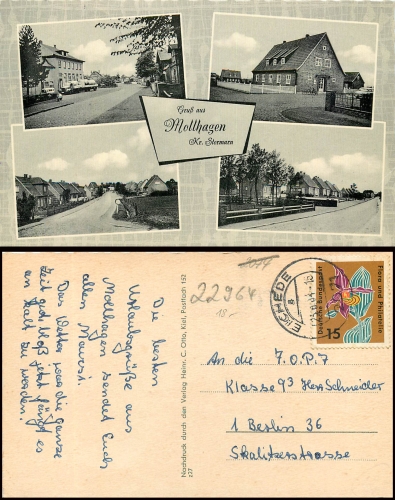 Gruß aus
Mollhagen
Kr. Stormarn
Die besten
Urlaubsgrüße aus
Mollhagen sendet Euch
allen Mausi.
Das Wetter war die ganze
Zeit gut bloß jetzt fängt es
an kalt zu werden.
Nachdruck durch den Verlag Heinr. C. Otto, Kiel, Postfach 152
227
22964
EICHEDE
a
Flora und Philatelie
15
An die 7. O. P 7
Klasse 93 Herr Schneider
1 Berlin 36
Skalitzerstrasse